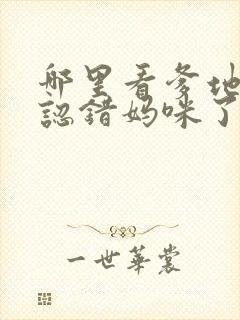 哪里看爹地
認錯妈咪了
一世華裳